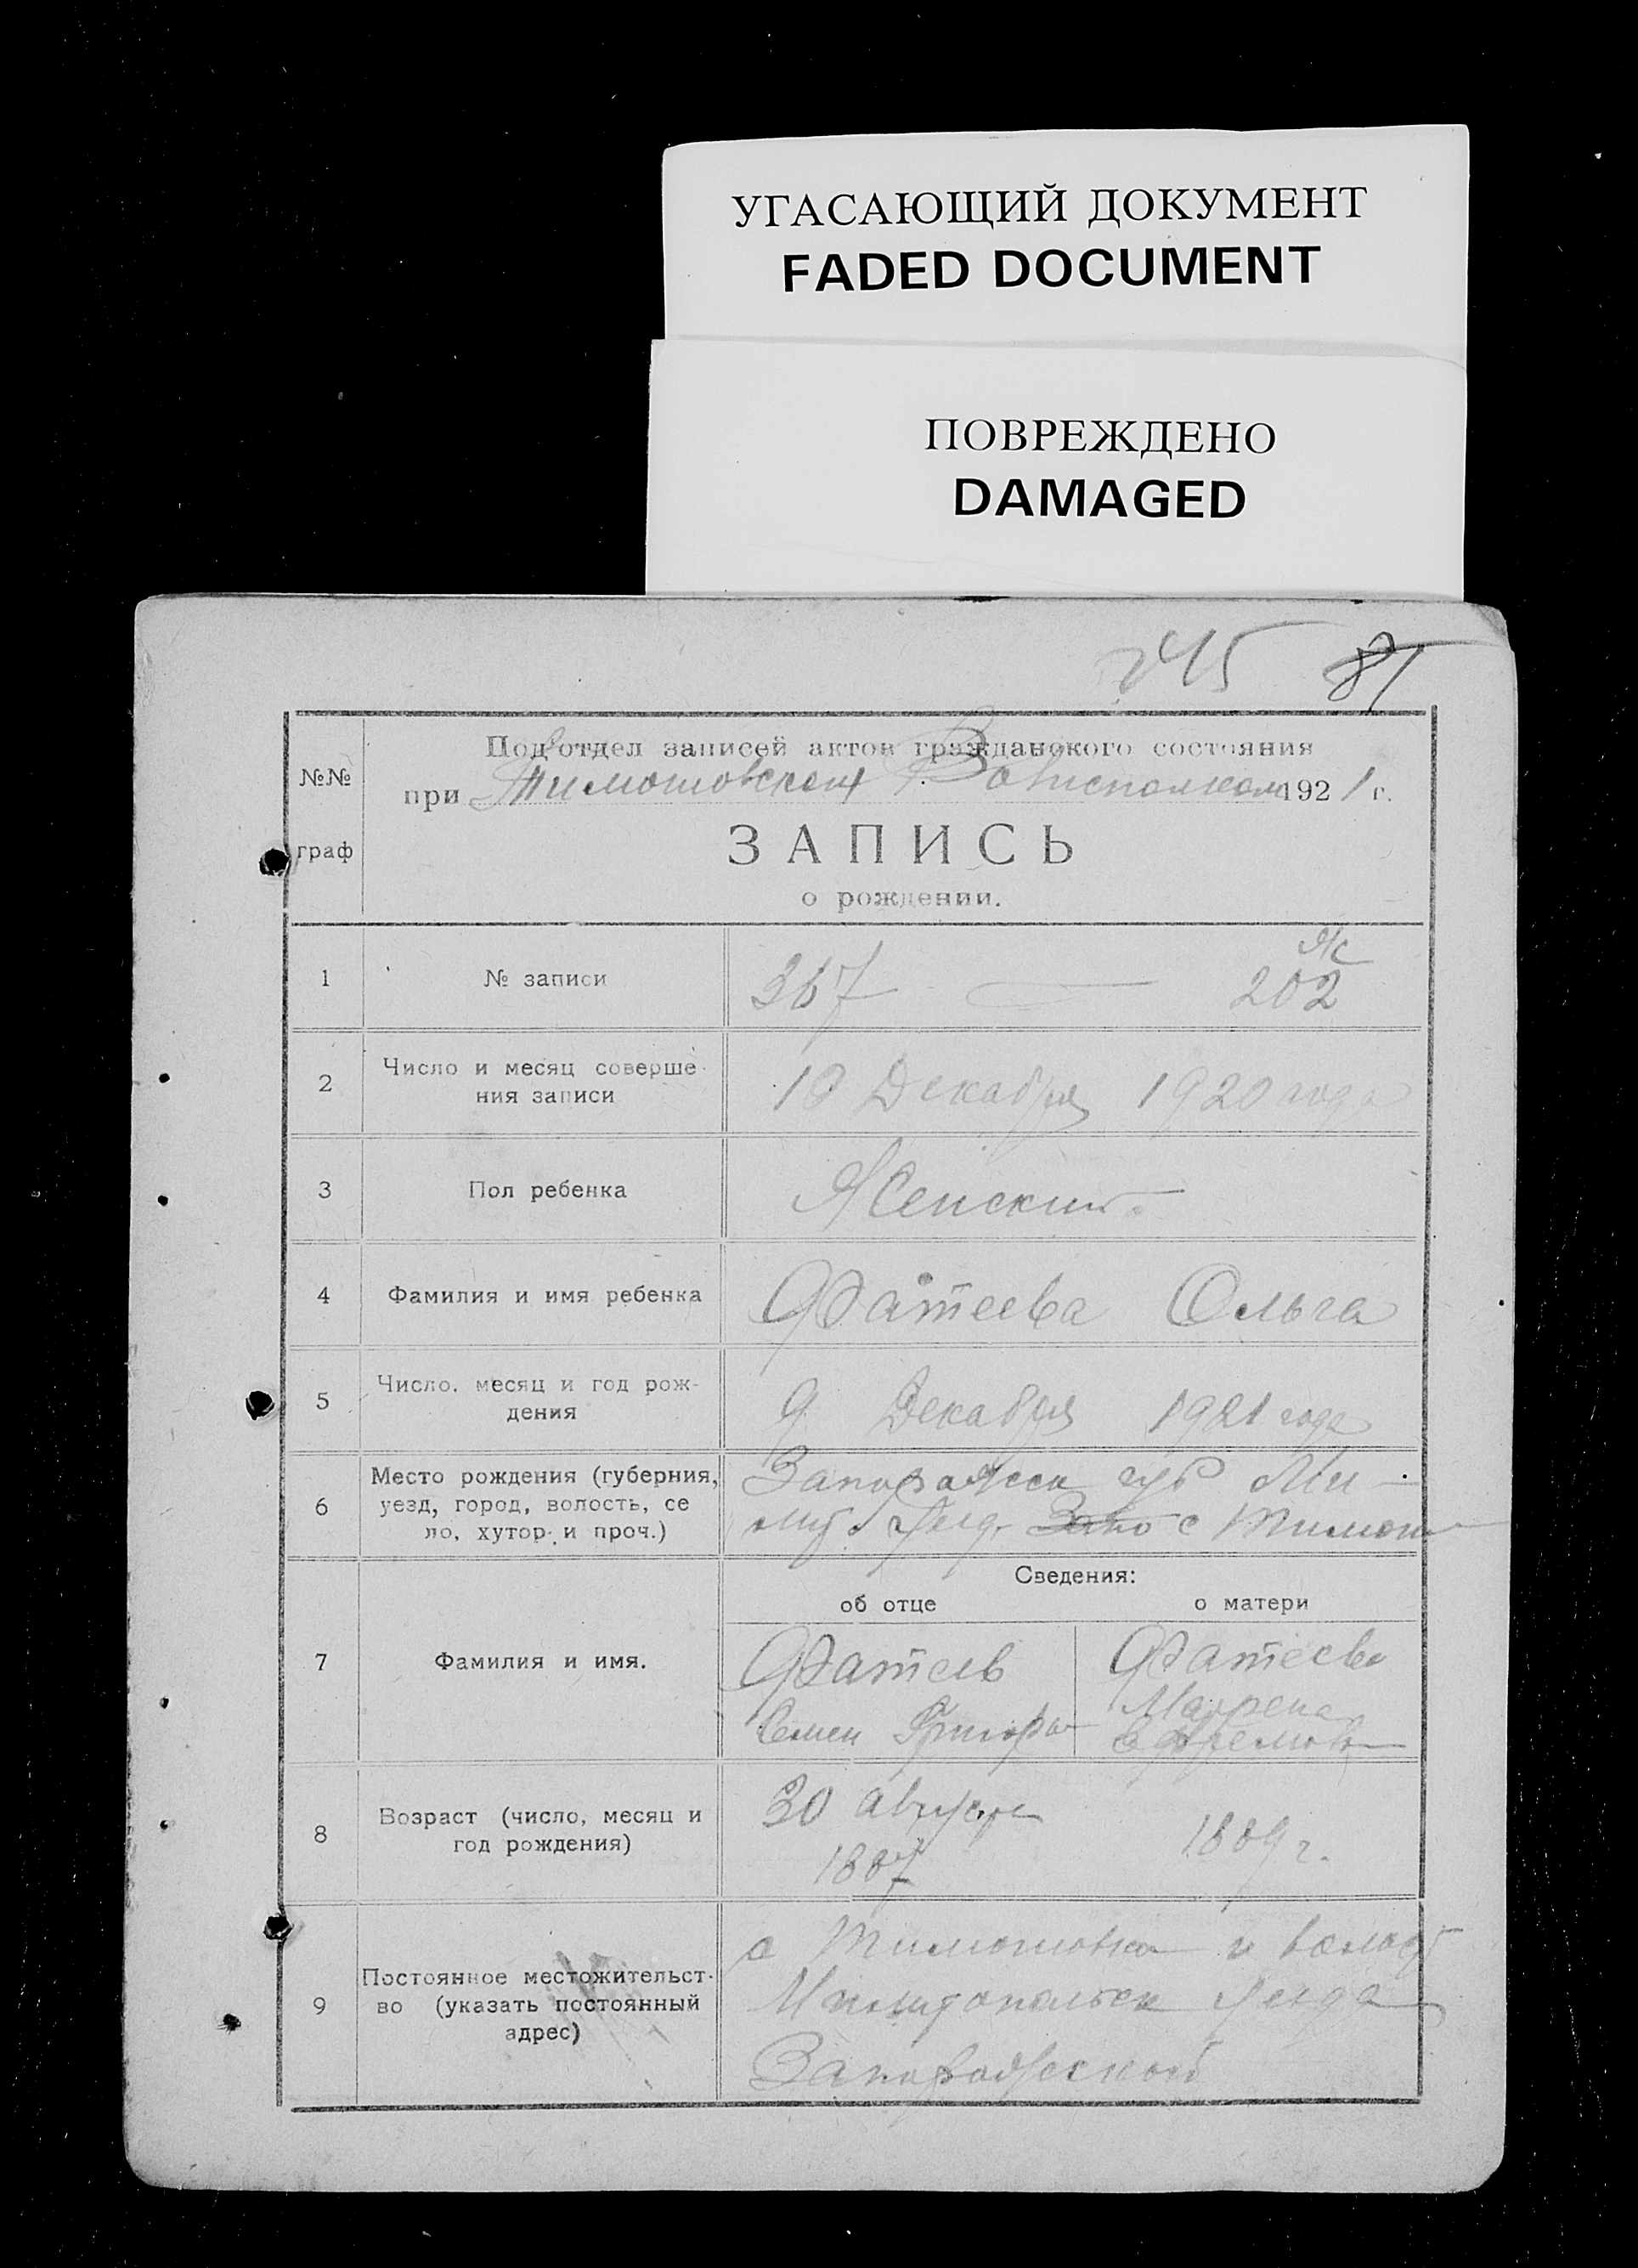 УГАСАЮЩИЙ ДОКУМЕНТ
FADED DOCUMENT
ПОВРЕЖДЕНО
DAMAGED
245 81
№№
граф
Подотдел записей актов гражданского состояния
при Тимошовском Волисполком 1921 г.
ЗАПИСЬ
о рождении.
1 № записи 367 — Ж 202
2 Число и месяц соверше-
ния записи 10 Декабря 1920 года
3 Пол ребенка Женский
4 Фамилия и имя ребенка Фатеева Ольга
5 Число, месяц и год рож-
дения 9 Декабря 1921 года
6 Место рождения (губерния,
уезд, город, волость, се
ло, хутор и проч.)
губ Ми-
с Тимош
Сведения:
об отце о матери
7 Фамилия и имя.
Фатеев Фатеева
Семен Григор Марена
Ефремов
8 Возраст (число, месяц и
год рождения)
30 августа
1887 1889 г.
9 Постоянное местожительст-
во (указать постоянный
адрес)
с Тимошовка и волост
уезда
Запорожской